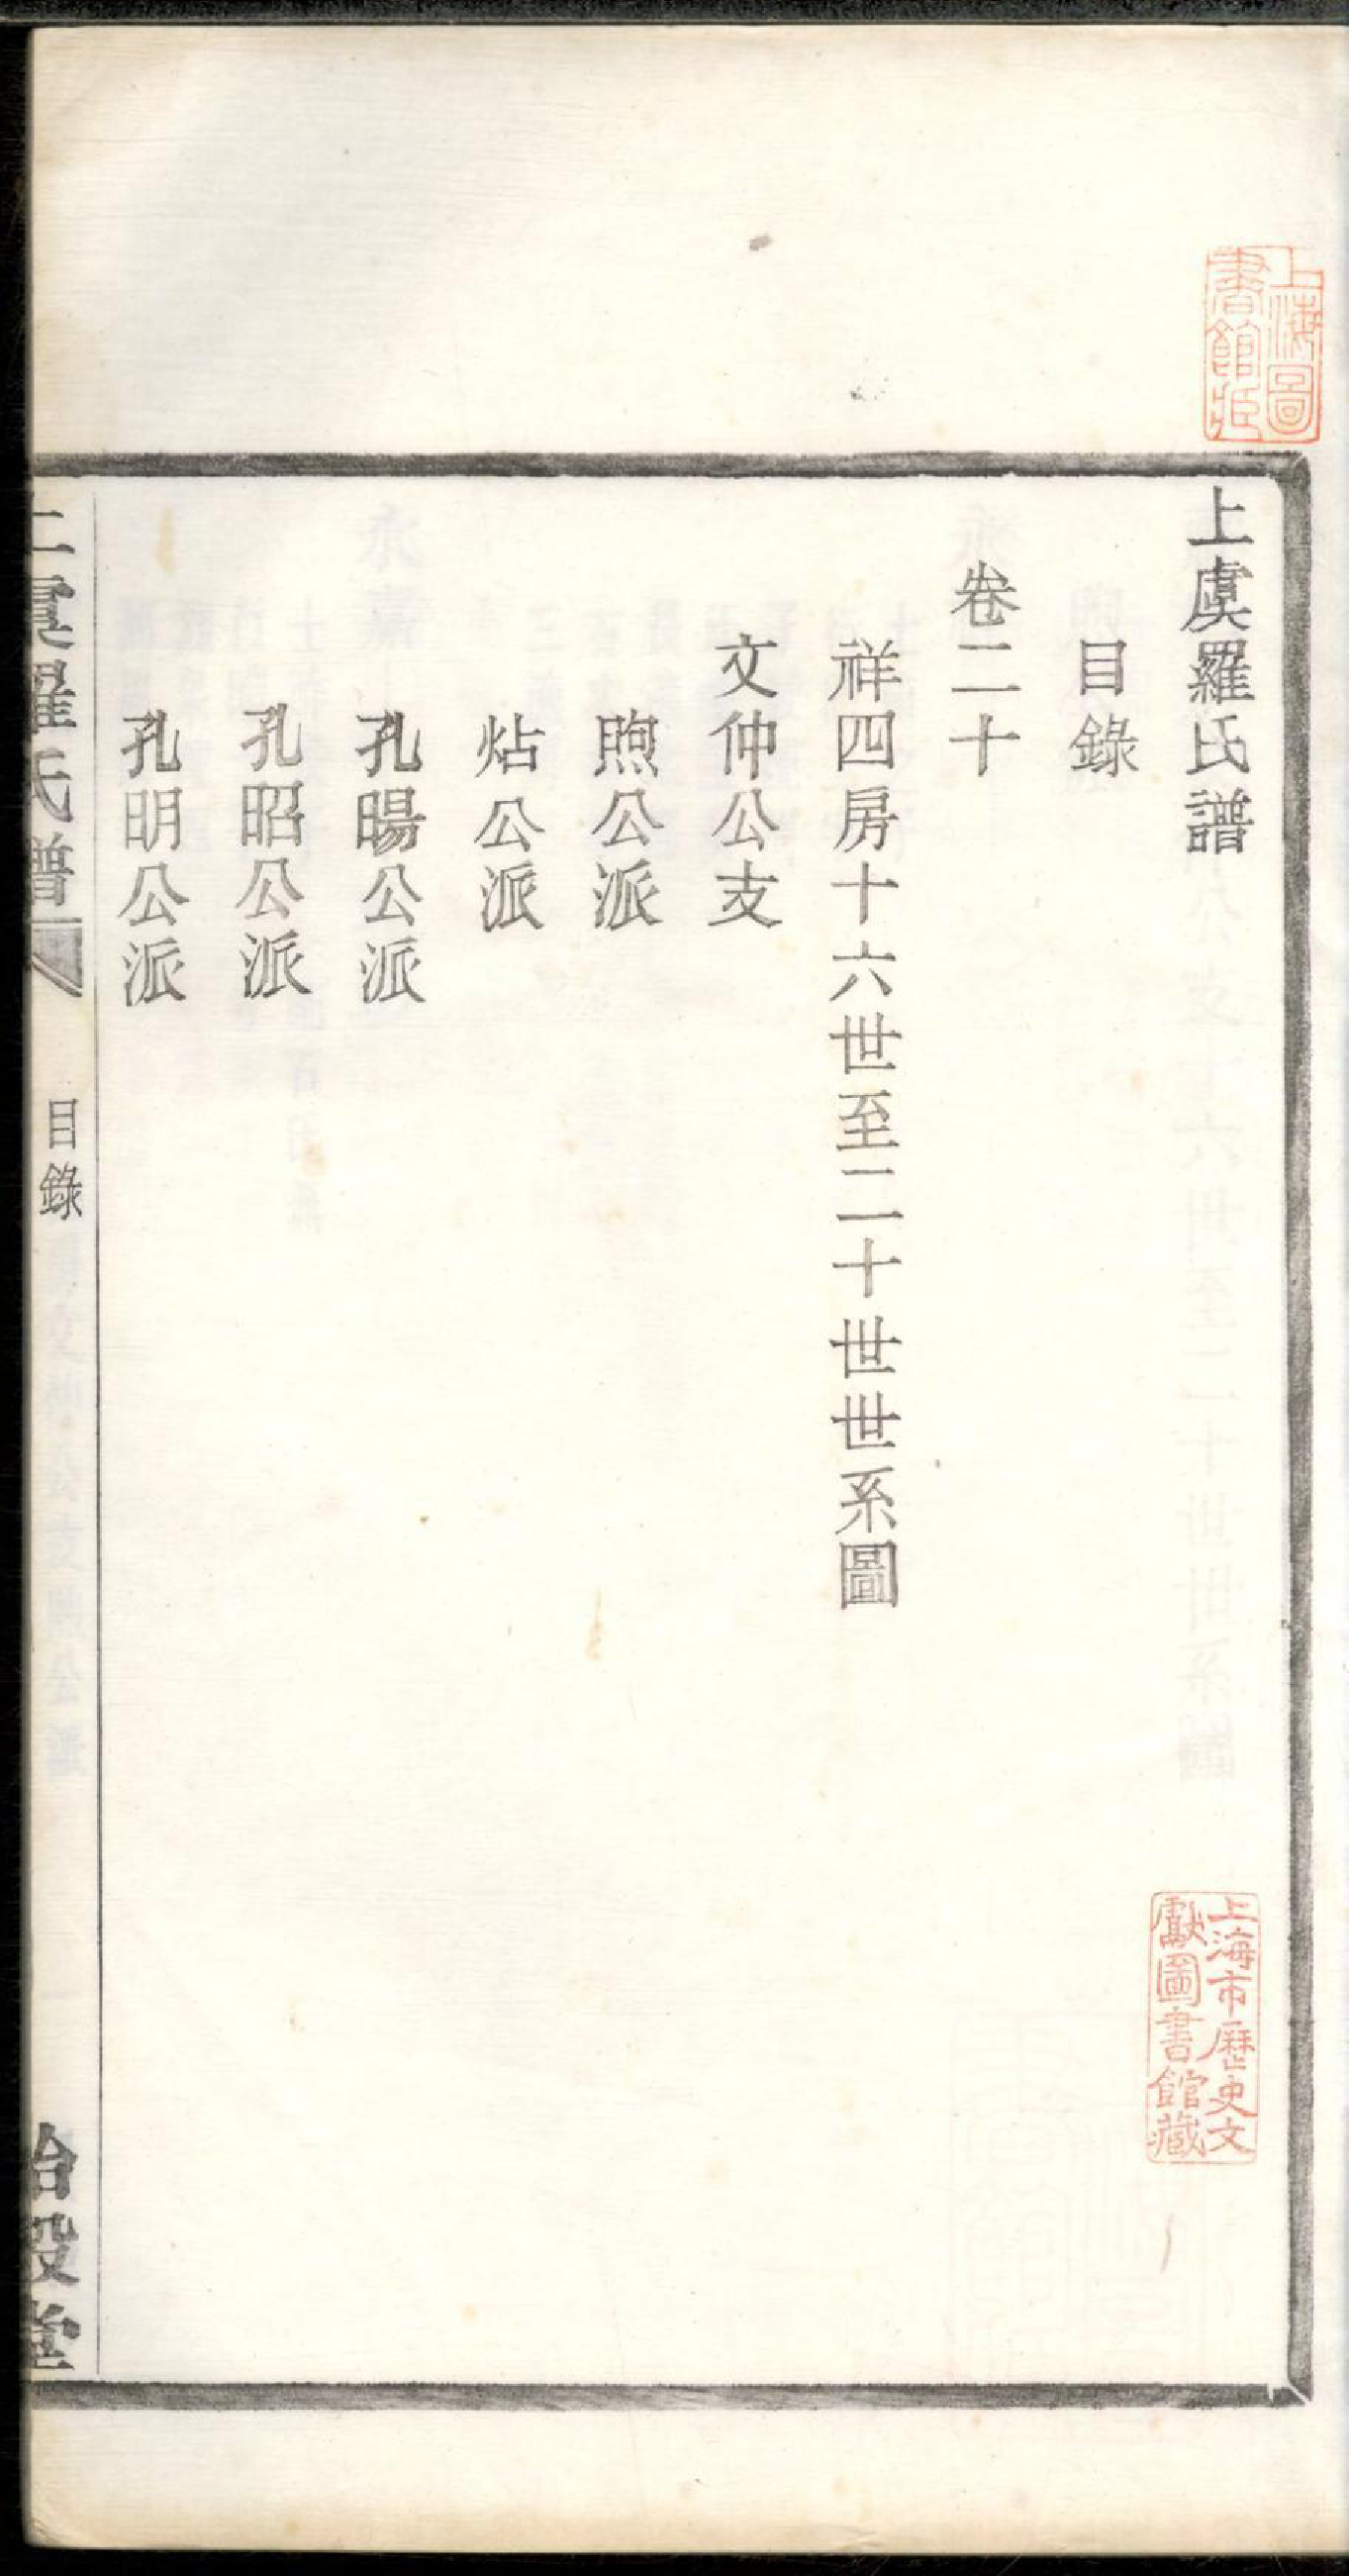 上虞羅氏譜
目錄
卷二十
祥四房十六世至二十世世系圖
文仲公支
煦公派
炶公派
孔暘公派
孔昭公派
孔明公派
上虞羅氏譜
目錄
治穀堂
上海圖書館藏
上海市歷史文獻圖書館藏